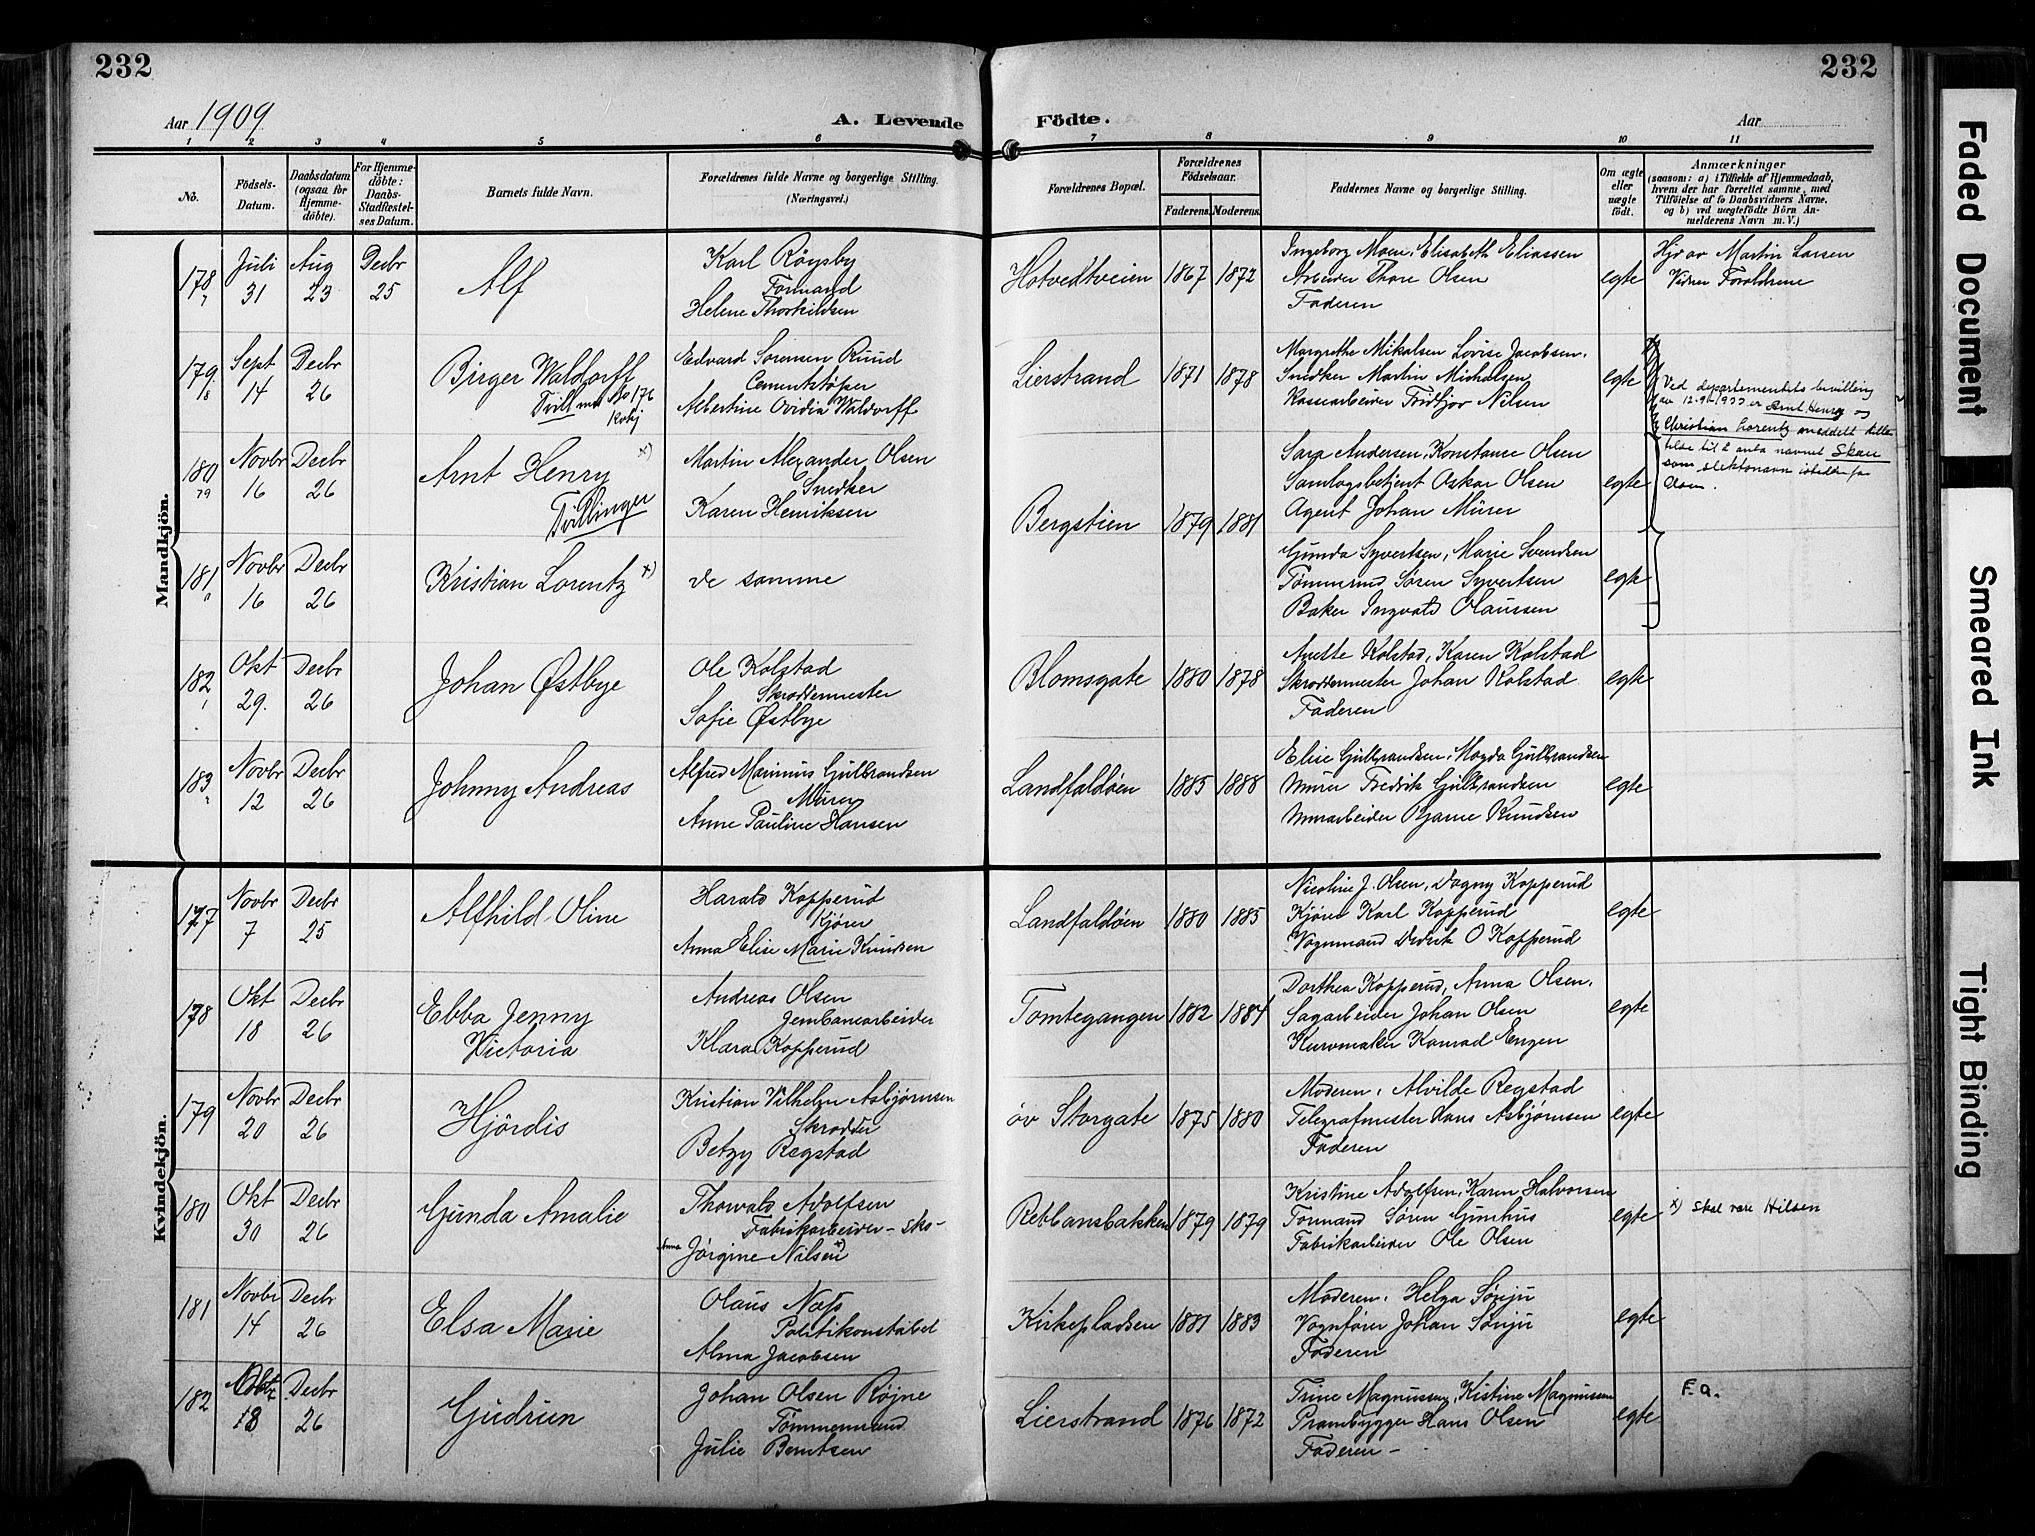 232
232
Aar 1909
A. Levende
Födte.
Aar
1 2 3 4 5 6 7 8 9 10 11
No.
Födsels-
Datum.
Daabsdatum
(ogsaa for
Hjemme-
döbte).
For Hjemme-
döbte:
Daabs-
Stadfæstel-
ses Datum.
Barnets fulde Navn.
Forældrenes fulde Navne og borgerlige Stilling.
(Næringsvei.)
Forældrenes Bopæl.
Forældrenes
Födselsaar.
Faderens.
Moderens.
Faddernes Navne og borgerlige Stilling.
Om ægte
eller
uægte
födt.
Anmærkninger
(saasom: a) i Tilfælde af Hjemmedaab,
hvem der har forrettet samme, med
Tilföielse af to Daabsvidners Navne,
og b) ved uægtefödte Börn An-
melderens Navn m. V.)
Mandkjön.
178
Juli
31
Aug
23
Decbr
25
Alf
Karl Röysby
Formand
Helene Thorkildsen
Hotvedtveien
1867
1872
Ingeborg Moen, Elisabeth Eliassen
Arbeider Thore Olsen
Faderen
egte
Hjv av Martin Larsen
Vidner Foraldrene
179
18
Sept
14
Decbr
26
Birger Waldorff
Tvill med No 176
Kvkj
Edvard Sorensen Ruud
Cementstøper
Albertine Ovidia Waldorff
Lierstrand
1871
1878
Margrethe Mikalsen Lovise Jacobsen,
Snedker Martin Michalsen
Kassearbeider Fridtjov Nilsen
egte
Ved departementets bevilling
Arnt Henry og
Christian Lorentz meddelt tilla-
telse til å anta navnet Skau
som slektsnavn istedenfor
Olsen.
180
79
Novbr
16
Decbr
26
Arnt Henry x)
Tvillinger
Martin Alexander Olsen
Snedker
Karen Henriksen
Bergstien
1879
1881
Sara Andersen, Konstance Olsen
Samlagsbetjent Oskar Olsen
Agent Johan Mürer
egte
181
"
Novbr
16
Decbr
26
Kristian Lorentz x)
de samme
Gunda Syvertsen, Marie Svendsen
Tømmermd Søren Syvertsen
Baker Ingvald Olaussen
egte
182
Okt
29.
Decbr
26
Johan Østbye
Ole Kolstad
Skreddermester
Sofie Østbye
Blomsgate
1880
1878
Anette Kolstad, Karen Kolstad
Skreddermester Johan Kolstad
Faderen
egte
183
Novbr
12
Decbr
26
Johnny Andreas
Alfred Marinius Gulbrandsen
Murer
Anne Pauline Hansen
Landfaldøen
1885
1888
Elise Gulbrandsen, Magda Gulbrandsen
Murer Fredrik Gulbrandsen
Murarbeider Bjarne Knudsen
egte
Kvindekjön.
177
Novbr
7
Decbr
25
Alfhild Oline
Harald Kopperud
Kjører
Anna Elise Marie Knudsen
Landfaldøen
1880
1885
Nicoline J. Olsen, Dagny Kopperud
Kjører Karl Kopperud
Vognmand Didrik O Kopperud
egte
178
Okt
18
Decbr
26
Ebba Jenny
Victoria
Andreas Olsen
Jernbanearbeider
Klara Kopperud
Tomtegangen
1882
1884
Dorthea Kopperud, Anna Olsen,
Sagarbeider Johan Olsen
Kurvmaker Konrad Engen
egte
179
Novbr
20
Decbr
26
Hjördis
Kristian Vilhelm Asbjørnsen
Skrædder
Betzy Regstad
öv Storgate
1875
1880
Moderen, Alvilde Regstad
Telegrafmester Hans Asbjørnsen
Faderen
egte
180
Okt
30
Decbr
26
Gunda Amalie
Thorvald Adolfsen
Fabrikarbeider - sko-
Anna Jørgine Nilsen x)
Rebbansbakken
1879
1879
Kristine Adolfsen, Karen Halvorsen
Formand Søren Gunhus
Fabrikarbeider Ole Olsen
egte
x) skal være Hilsen
181
Novbr
14
Decbr
26
Elsa Marie
Olaus Næss
Politikonstabel
Alma Jacobsen
Kirkepladsen
1881
1883
Moderen, Helga Sønju
Vognfører Johan Sønju
Faderen
egte
182
18
Decbr
26
Gudrun
Johan Olsen Røjne
Tømmermand
Julie Berntsen
Lierstrand
1876
1872
Trine Magnussen, Kistine Magnussen
Prambygger Hans Olsen
Faderen -
egte
F.a.
Faded Document
Smeared Ink
Tight Binding